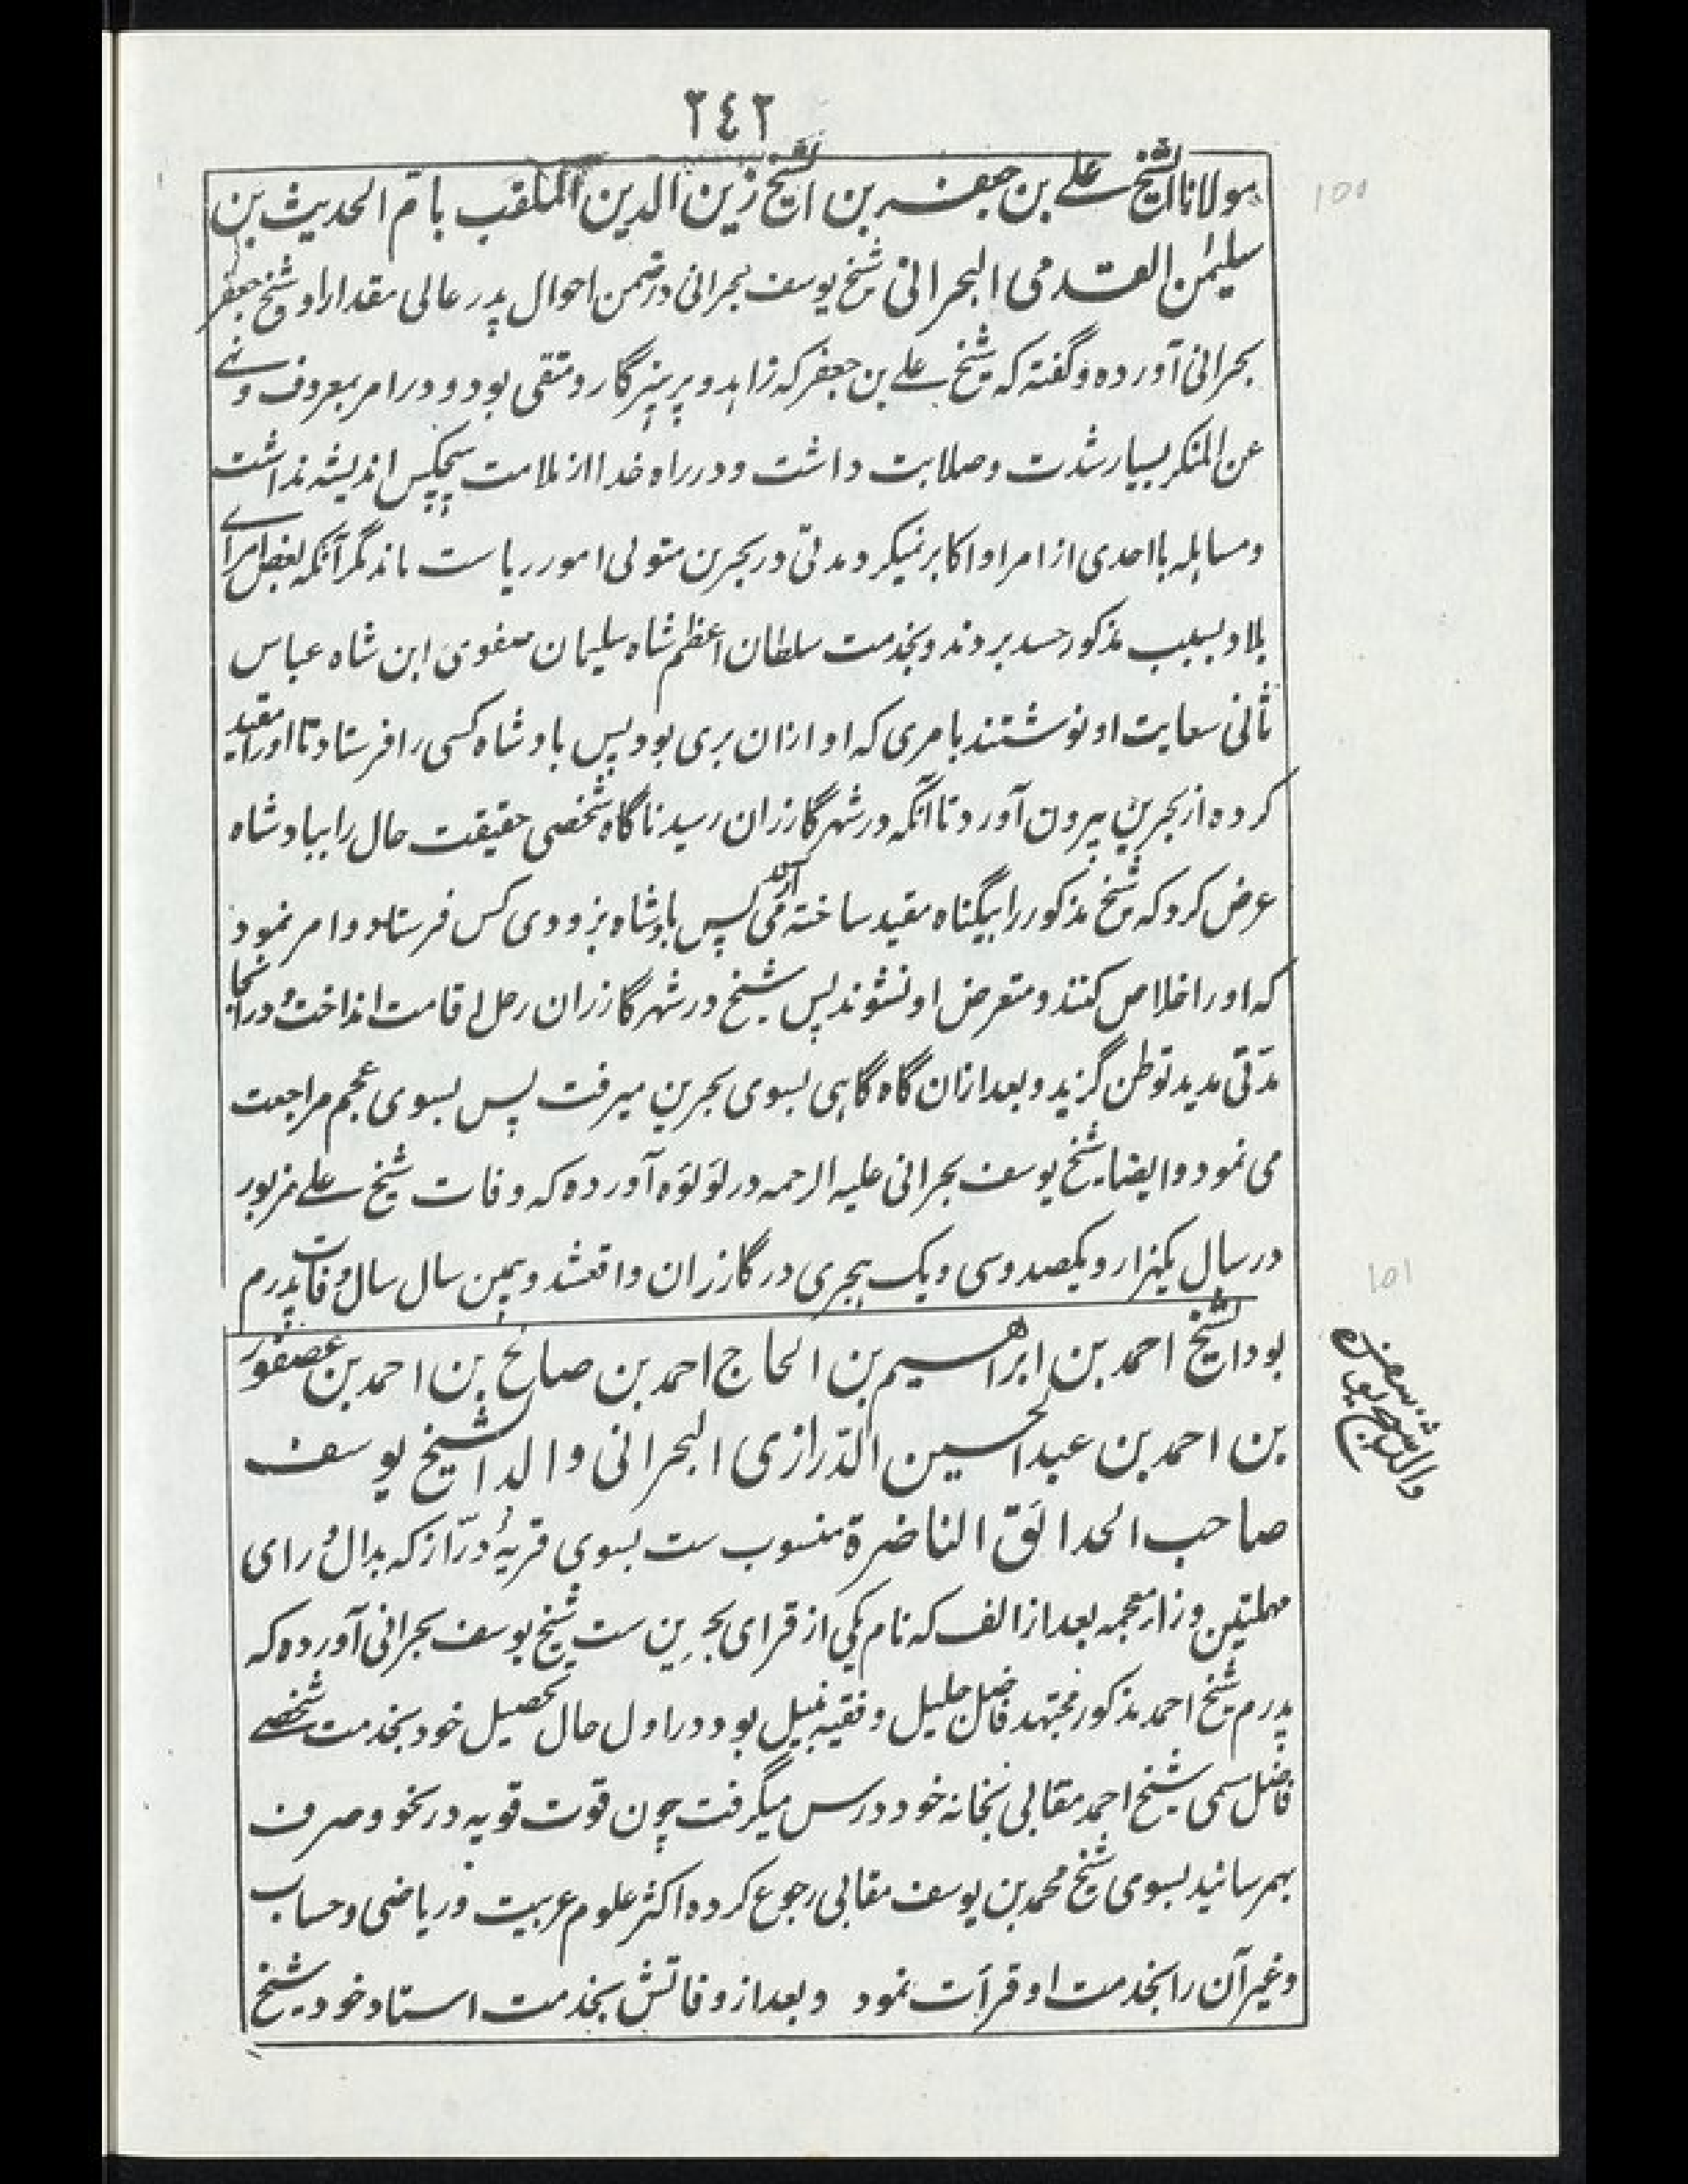 ٢٤٢
مولانا الشیخ علے بن جعفر بن الشیخ زین الدین الملقب بامّ الحدیث بن
سلیمٰن القدمی البحرانی شیخ یوسف بحرانی در ضمن احوال پدر عالی مقدار او شیخ جعفر
بحرانی آورده و گفته که شیخ علے بن جعفر که زاهد و پرهیزگار و متقی بود و در امر بمعروف و نهے
عن المنکر بسیار شدت و صلابت داشت و در راه خدا از ملامت هیچکس اندیشه نداشت
و مساهله با احدی از امرا و اکابر نمیکرد و مدتی در بحرین متولی امور ریاست ماند مگر آنکه بعض امرای
بلاد بسبب مذکور حسد بردند و بخدمت سلطان اعظم شاه سلیمان صفوی ابن شاه عباس
ثانی سعایت او نوشتند بامری که او ازان بری بود پس بادشاه کسی را فرستاد تا او را مقید
کرده از بحرین بیرون آورد تا آنکه در شهر گازران رسید ناگاه شخصی حقیقت حال را ببادشاه
عرض کرد که شیخ مذکور را بیگناه مقید ساخته می آرند پس بادشاه بزودی کس فرستاد و امر نمود
که او را خلاص کنند و متعرض او نشوند پس شیخ در شهر گازران رحل اقامت انداخت و در آنجا
مدّتی مدید توطن گزید و بعد ازان گاه گاهی بسوی بحرین میرفت پس بسوی عجم مراجعت
می نمود و ایضا شیخ یوسف بحرانی علیه الرحمه در لؤلؤه آورده که وفات شیخ علے مزبور
در سال یکهزار و یکصد و سی و یک هجری در گازران واقعشد و همین سال سال وفات پدرم
بود الشیخ احمد بن ابراهیم بن الحاج احمد بن صالح بن احمد بن عصفور
بن احمد بن عبد الحسین الدّرازی البحرانی والد الشیخ یوسف
صاحب الحدائق الناضرة منسوب ست بسوی قریهٔ درّاز که بدال و رای
مهملتین و زاء معجمه بعد از الف که نام یکی از قرای بحرین ست شیخ یوسف بحرانی آورده که
پدرم شیخ احمد مذکور مجتهد فاضل جلیل و فقیه نبیل بود در اول حال تحصیل خود بخدمت شخصے
فاضل سمی شیخ احمد مقابی بخانه خود درس میگرفت چون قوت قویه در نحو و صرف
بهم رسانید بسوی شیخ محمد بن یوسف مقابی رجوع کرده اکثر علوم عربیت و ریاضی و حساب
و غیر آن را بخدمت او قرأت نمود و بعد از وفاتش بخدمت استاد خود شیخ
100
101
والد شیخ یوسف